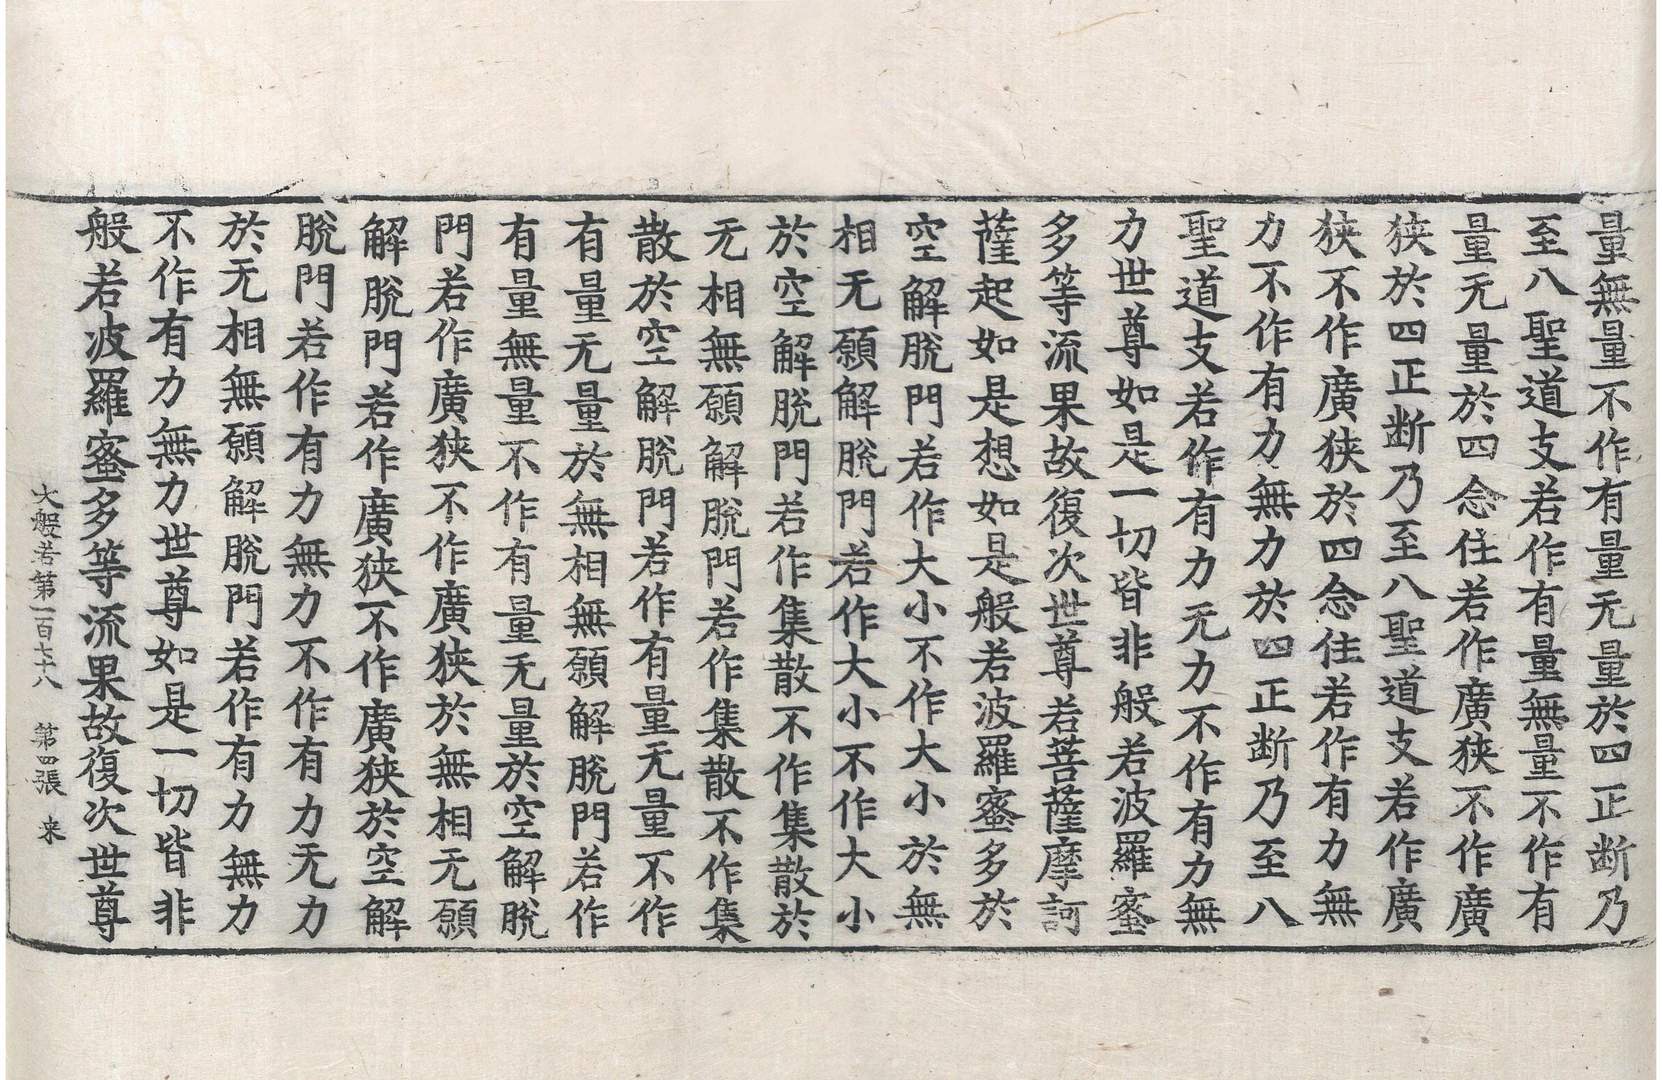 量無量不作有量无量於四正断乃
至八聖道支若作有量無量不作有
量无量於四念住若作廣狹不作廣
狹於四正断乃至八聖道支若作廣
狹不作廣狹於四念住若作有力無
力不作有力無力於四正断乃至八
聖道支若作有力无力不作有力無
力世尊如是一切皆非般若波羅蜜
多等流果故復次世尊若菩薩摩訶
薩起如是想如是般若波羅蜜多於
空解脫門若作大小不作大小於無
相无願解脫門若作大小不作大小
於空解脫門若作集散不作集散於
无相無願解脫門若作集散不作集
散於空解脫門若作有量无量不作
有量无量於無相無願解脫門若作
有量無量不作有量无量於空解脫
門若作廣狹不作廣狹於無相无願
解脫門若作廣狹不作廣狹於空解
脫門若作有力無力不作有力无力
於无相無願解脫門若作有力無力
不作有力無力世尊如是一切皆非
般若波羅蜜多等流果故復次世尊
大般若第一百七十八 第四張 来